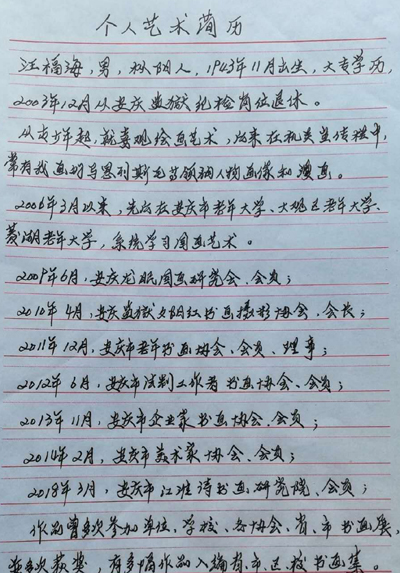 个人艺术简历
汪福海，男，枞阳人，1943年11月出生，大专学历，
2003年12月从安庆监狱纪检岗位退休。
从青少年起，就喜观绘画艺术，后来在机关宣传栏中，
常有我画的马恩列斯毛等领袖人物画像和漫画。
2006年3月以来，先后在安庆市老年大学、大观区老年大学、
菱湖老年大学，系统学习国画艺术。
2009年6月，安庆龙眠国画研究会、会员；
2010年4月，安庆监狱夕阳红书画摄影协会、会长；
2011年12月，安庆市老年书画协会、会员、理事；
2012年6月，安庆市法制工作者书画协会、会员；
2013年11月，安庆市企业家书画协会、会员；
2014年2月，安庆市美术家协会、会员；
2018年3月，安庆市江淮诗书画研究院、会员；
作品曾多次参加单位、学校、各协会、省、市书画展，
并多次获奖，有多幅作品入编省、市、区校书画集。